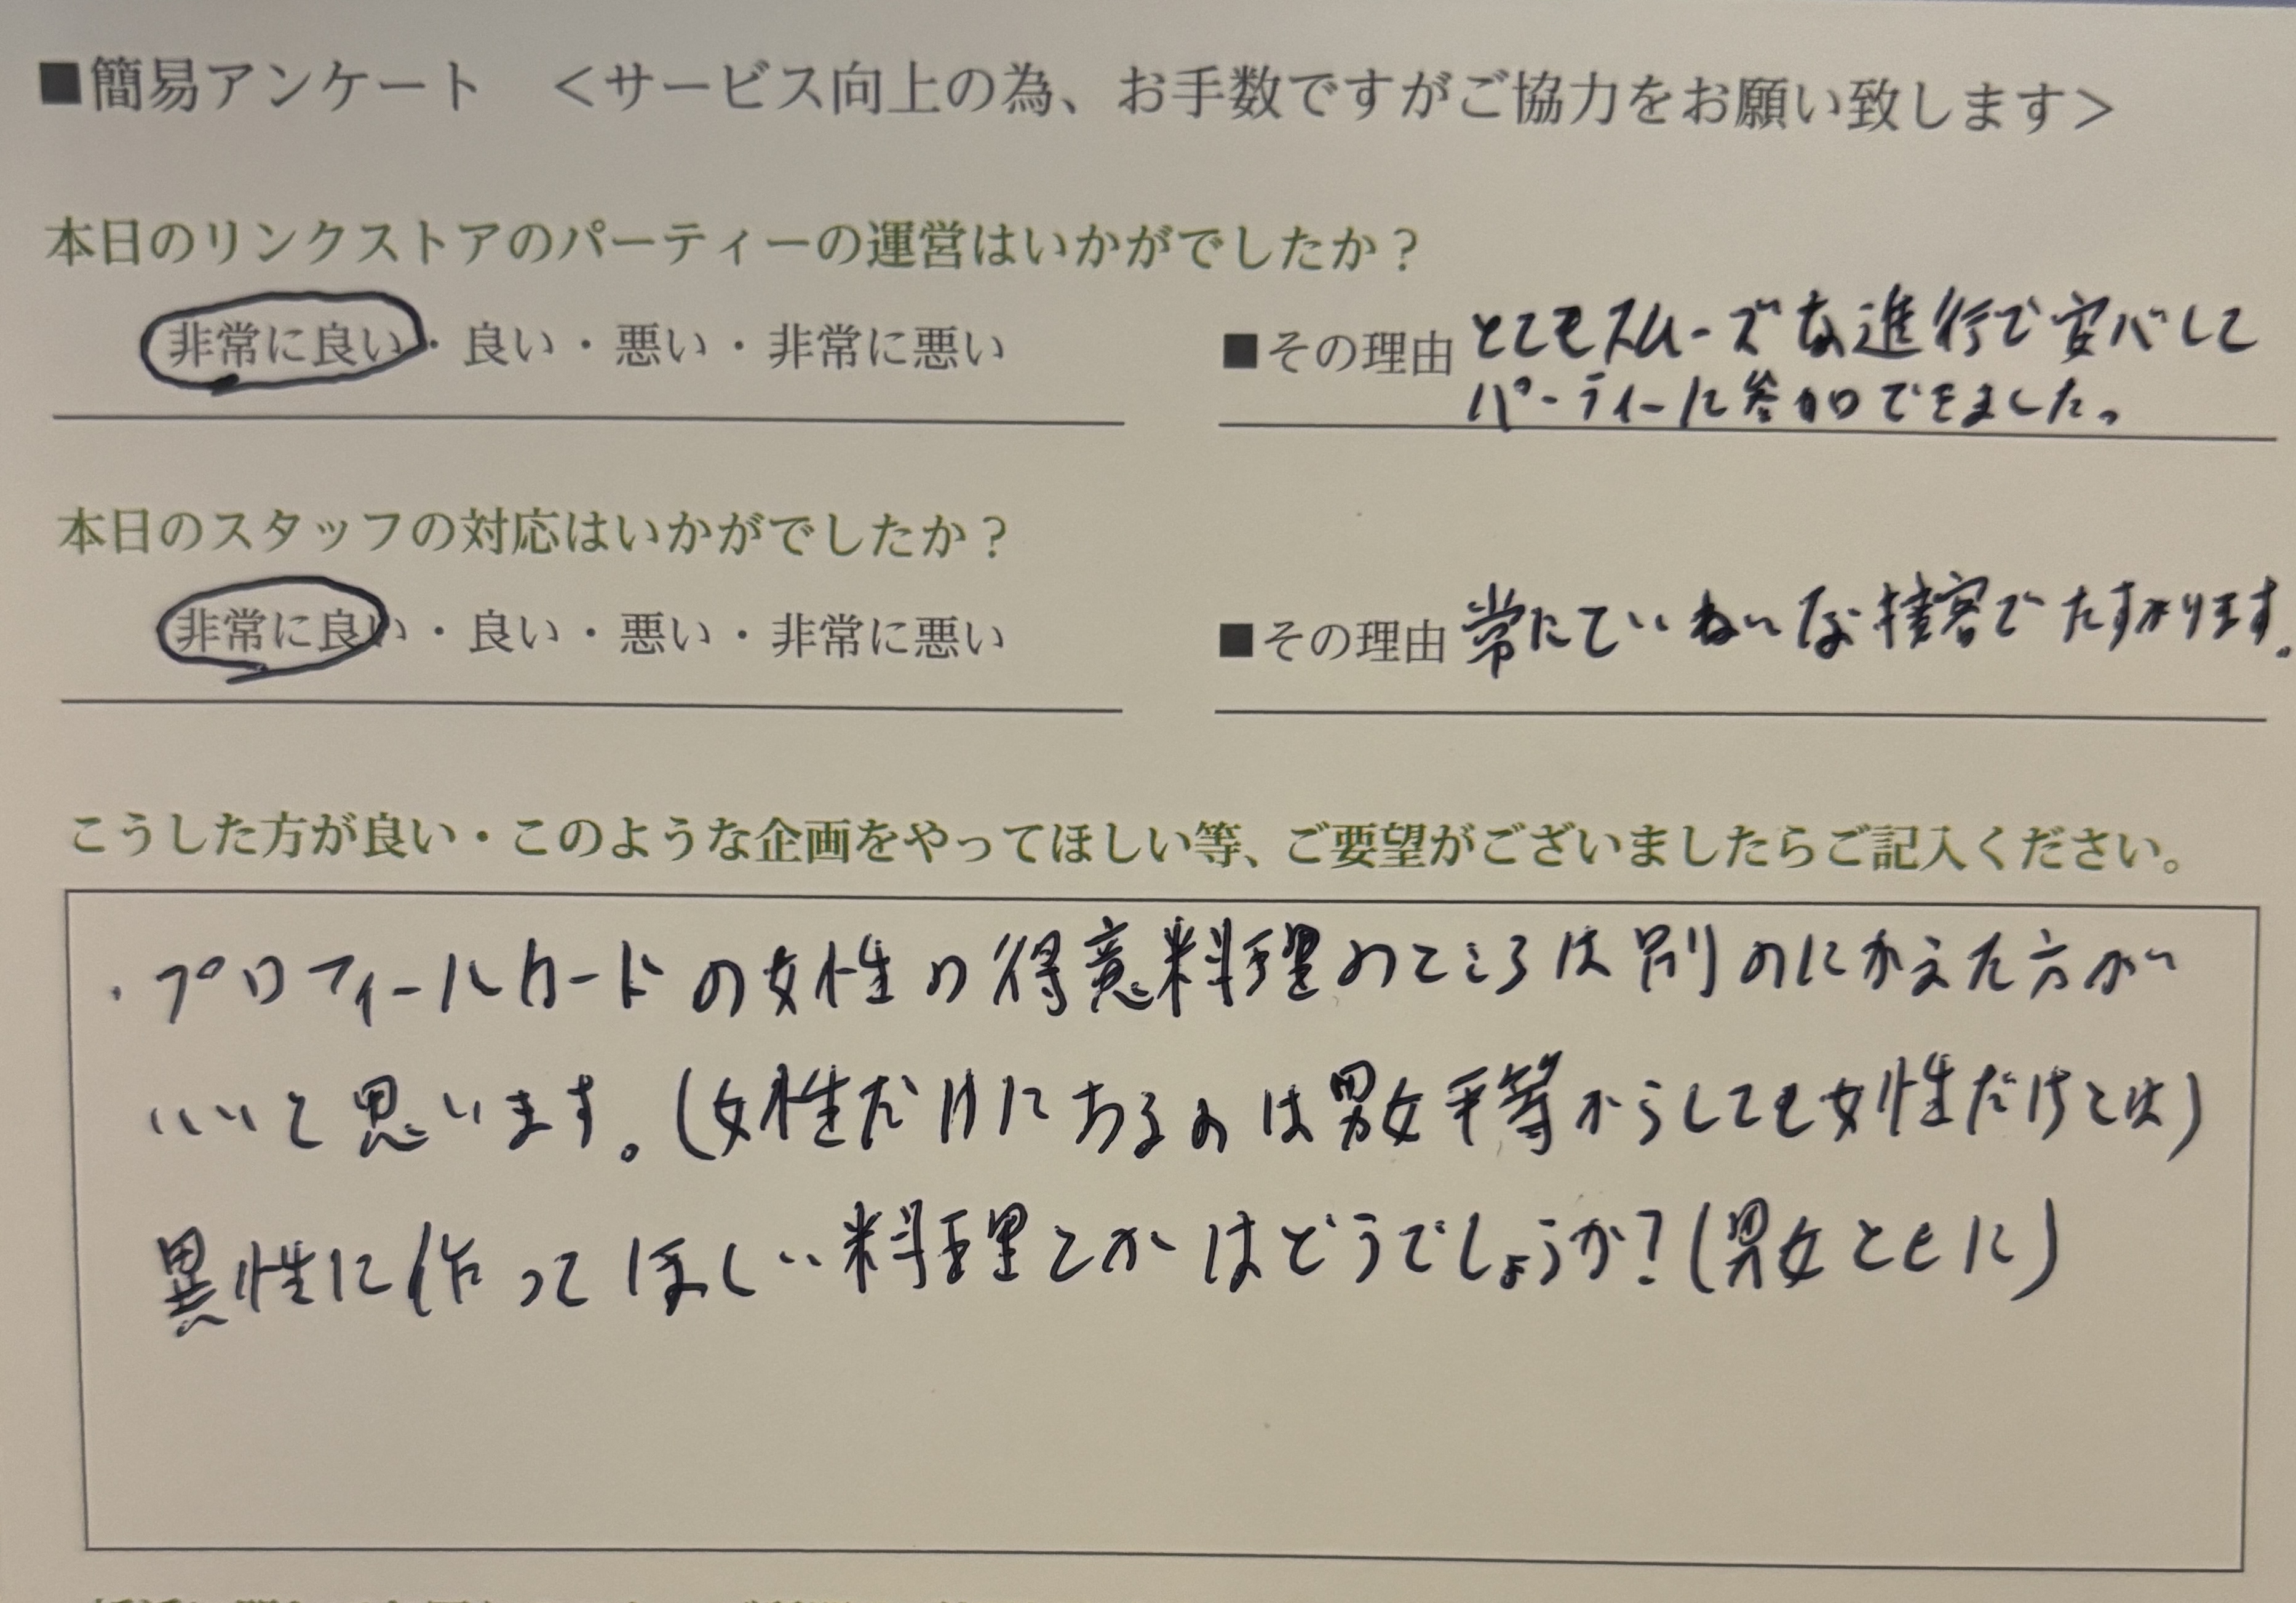 ■簡易アンケート　＜サービス向上の為、お手数ですがご協力をお願い致します＞
本日のリンクストアのパーティーの運営はいかがでしたか？
非常に良い・良い・悪い・非常に悪い
■その理由 とてもスムーズな進行で安心して
パーティーに参加できました。
本日のスタッフの対応はいかがでしたか？
非常に良い・良い・悪い・非常に悪い
■その理由 常にていねいな接客でたすかります。
こうした方が良い・このような企画をやってほしい等、ご要望がございましたらご記入ください。
・プロフィールカードの女性の得意料理のところは別のにかえた方が
いいと思います。(女性だけにあるのは男女平等からしても女性だけとは)
異性に作ってほしい料理とかはどうでしょうか?(男女ともに)